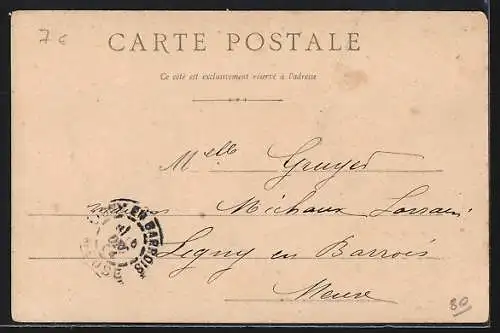 7 €
CARTE POSTALE
Ce côté est exclusivement réservé à l'adresse
Mlle Gruyer
Michaux Lorrain
Ligny en Barrois
Meuse
EN BARROIS
6
MEUSE
80